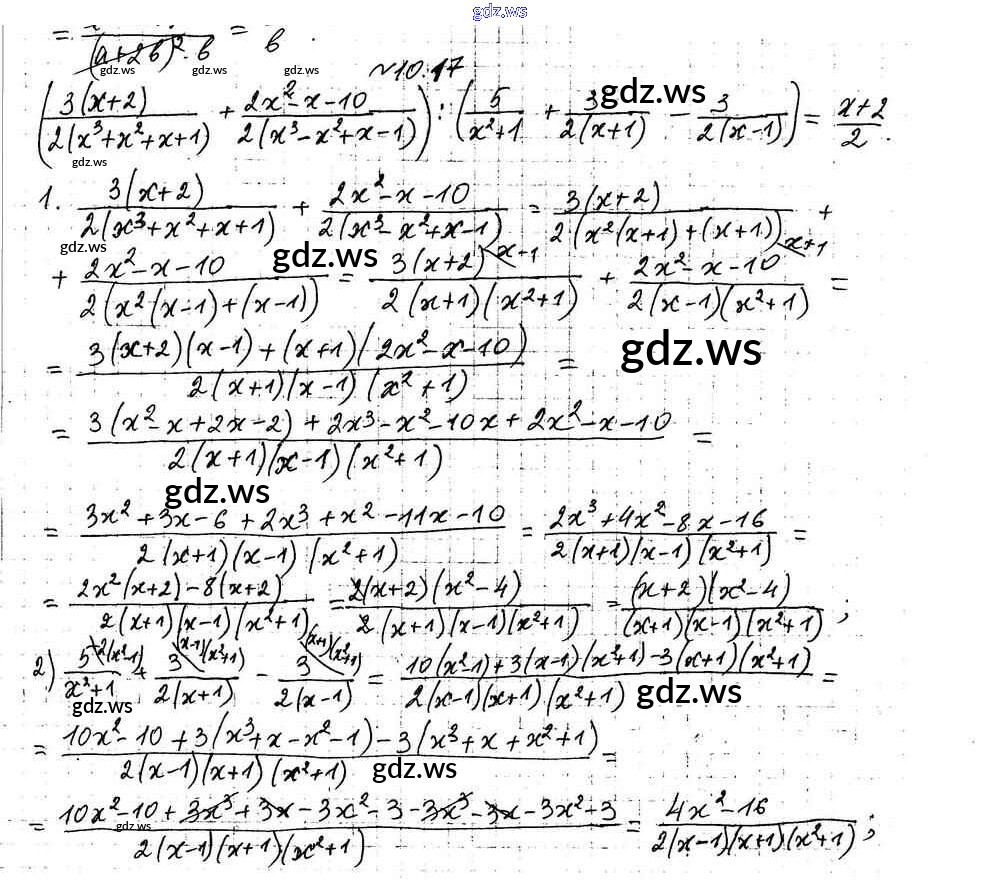 gdz.ws
= / (a+2b)²·b = b .
gdz.ws gdz.ws gdz.ws
№10.17
(3(x+2) / 2(x³+x²+x+1) + 2x²-x-10 / 2(x³-x²+x-1)) : (5 / x²+1 + 3 / 2(x+1) - 3 / 2(x-1)) = x+2 / 2 .
gdz.ws
gdz.ws
1. 3(x+2) / 2(x³+x²+x+1) + 2x²-x-10 / 2(x³-x²+x-1) = 3(x+2) / 2(x²(x+1)+(x+1)) +
gdz.ws gdz.ws
+ 2x²-x-10 / 2(x²(x-1)+(x-1)) = 3(x+2) \x-1 / 2(x+1)(x²+1) + 2x²-x-10 \x+1 / 2(x-1)(x²+1) =
= 3(x+2)(x-1)+(x+1)(2x²-x-10) / 2(x+1)(x-1)(x²+1) =
gdz.ws
= 3(x²-x+2x-2)+2x³-x²-10x+2x²-x-10 / 2(x+1)(x-1)(x²+1) =
gdz.ws
= 3x²+3x-6+2x³+x²-11x-10 / 2(x+1)(x-1)(x²+1) = 2x³+4x²-8x-16 / 2(x+1)(x-1)(x²+1) =
= 2x²(x+2)-8(x+2) / 2(x+1)(x-1)(x²+1) = 2(x+2)(x²-4) / 2(x+1)(x-1)(x²+1) = (x+2)(x²-4) / (x+1)(x-1)(x²+1) ;
2) 5 \2(x²-1) / x²+1 + 3 \(x-1)(x²+1) / 2(x+1) - 3 \(x+1)(x²+1) / 2(x-1) = 10(x²-1)+3(x-1)(x²+1)-3(x+1)(x²+1) / 2(x-1)(x+1)(x²+1) =
gdz.ws gdz.ws
= 10x²-10+3(x³+x-x²-1)-3(x³+x+x²+1) / 2(x-1)(x+1)(x²+1) =
gdz.ws
= 10x²-10+3x³+3x-3x²-3-3x³-3x-3x²+3 / 2(x-1)(x+1)(x²+1) = 4x²-16 / 2(x-1)(x+1)(x²+1) ;
gdz.ws gdz.ws